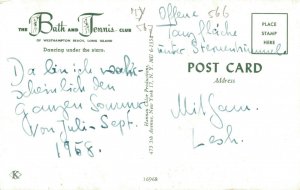 THE Bath and Tennis CLUB
OF WESTHAMPTON BEACH, LONG ISLAND
Dancing under the stars.
Da bin ich wahr-
scheinlich den
Ganzen Sommer
von Juli - Sept.
1958.
K
Offene 566
Tanzfläche
unter Sternenhimmel
PLACE
STAMP
HERE
POST CARD
Address
16968